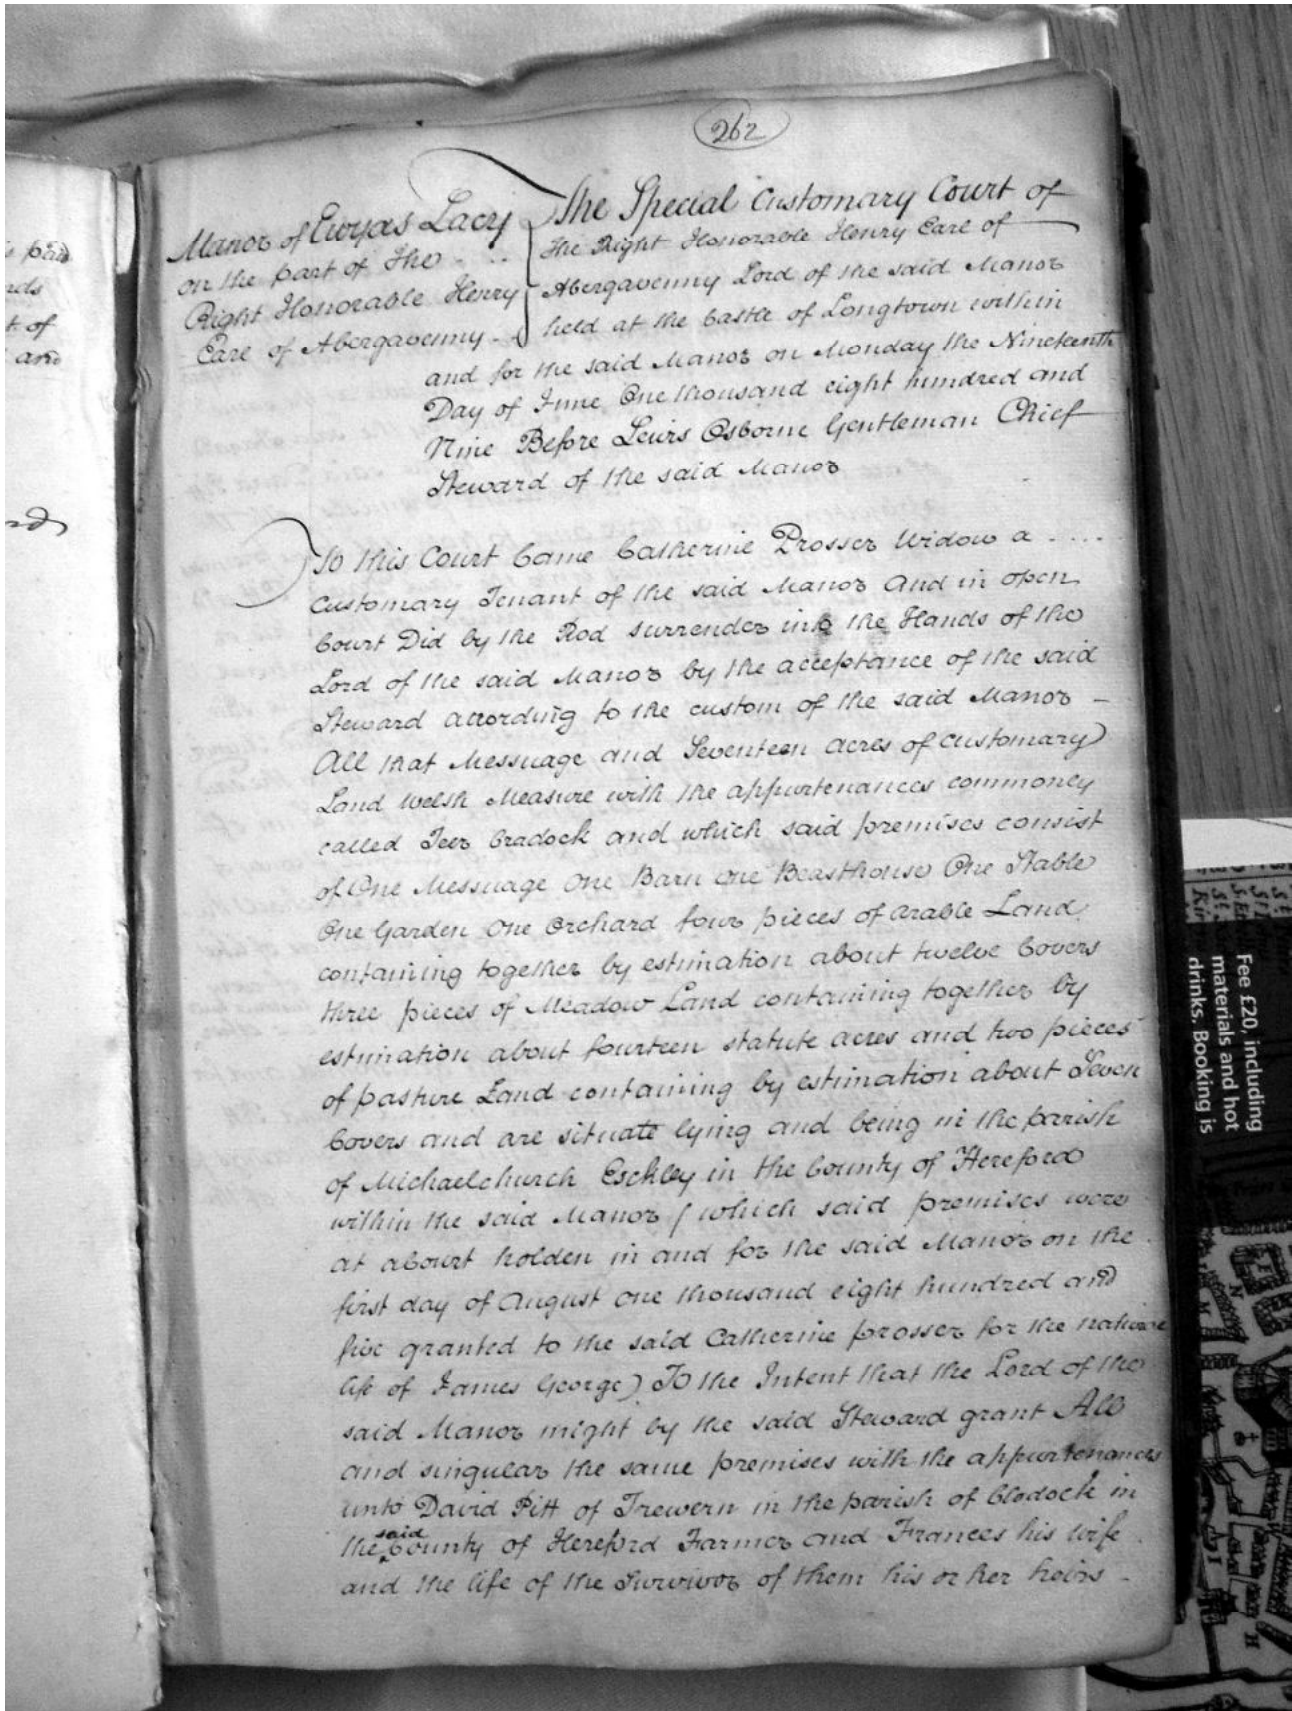 262
Manor of Ewyas Lacy
on the part of the
Right Honorable Henry
Earl of Abergavenny
The Special Customary Court of
the Right Honorable Henry Earl of
Abergavenny Lord of the said Manor
held at the Castle of Longtown within
and for the said Manor on Monday the Nineteenth
Day of June One thousand eight hundred and
Nine Before Lewis Osborne Gentleman Chief
Steward of the said Manor
To this Court Came Catherine Prosser Widow a ....
Customary Tenant of the said Manor And in open
Court Did by the Rod surrender into the Hands of the
Lord of the said Manor by the acceptance of the said
Steward according to the custom of the said Manor –
All that Messuage and Seventeen acres of customary
Land Welsh Measure with the appurtenances commonly
called Teer Cradock and which said premises consist
of One Messuage One Barn One Beasthouse One Stable
One Garden One Orchard four pieces of arable Land
containing together by estimation about twelve Covers
three pieces of Meadow Land containing together by
estimation about fourteen statute acres and two pieces
of pasture Land containing by estimation about Seven
Covers and are situate lying and being in the parish
of Michaelchurch Esckley in the County of Hereford
within the said Manor (which said premises were
at a Court holden in and for the said Manor on the
first day of August One thousand eight hundred and
five granted to the said Catherine prosser for the natural
life of James George) To the Intent that the Lord of the
said Manor might by the said Steward grant All
and singular the same premises with the appurtenances
unto David Pitt of Trewern in the parish of Clodock in
the said County of Hereford Farmer and Frances his wife
and the life of the Survivor of them his or her heirs –
Fee £20, including
materials and hot
drinks. Booking is